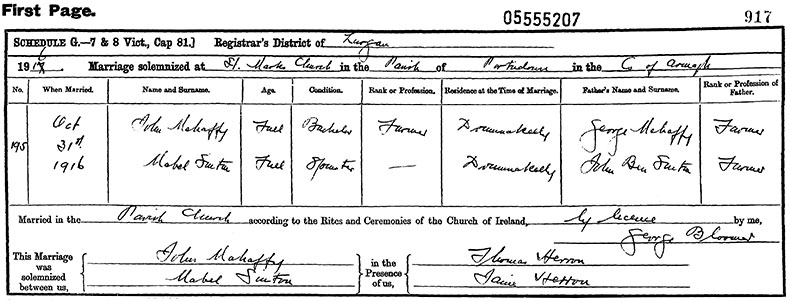 First Page.
05555207
917
SCHEDULE G.—7 & 8 Vict., Cap 81.] Registrar's District of Lurgan
19 Marriage solemnized at St. Marks Church in the Parish of Portadown in the Co of Armagh
No. When Married. Name and Surname. Age. Condition. Rank or Profession. Residence at the Time of Marriage. Father's Name and Surname. Rank or Profession of Father.
195 Oct 31st 1916
John Mahaffy Full Bachelor Farmer Drumnakelly George Mahaffy Farmer
Mabel Sinton Full Spinster — Drumnakelly John Ben Sinton Farmer
Married in the Parish Church according to the Rites and Ceremonies of the Church of Ireland, by licence by me,
George Bloomer
This Marriage was solemnized between us, John Mahaffy Mabel Sinton in the Presence of us, Thomas Herron Janie Herron